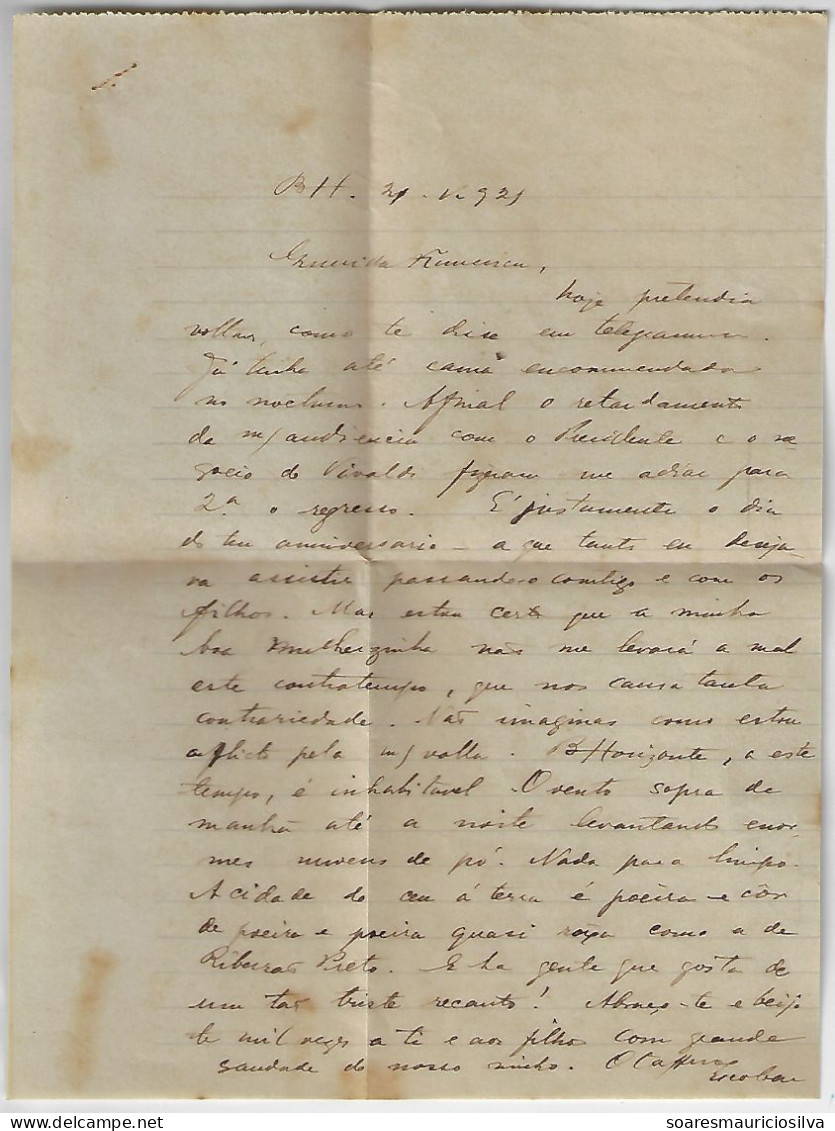 BH. 21 - V - 921
Querida Francisca,
hoje pretendia
voltar, como te disse em telegramma.
Já tinha até cama encommendada
no nocturno. Afinal o retardamento
da m/ audiencia com o Presidente e o ne
gocio do Vivaldi fizeram me adiar para
2.ª o regresso. É justamente o dia
do teu anniversario - a que tanto eu deseja
va assistir passando-o comtigo e com os
filhos. Mas estou certo que a minha
boa mulherzinha não me levará a mal
este contratempo, que nos causa tanta
contrariedade. Não imaginas como estou
afflicto pela m/ volta. BHorizonte, a este
tempo, é inhabitavel. O vento sopra de
manhã até a noite levantando enor
mes nuvens de pó. Nada para limpo.
A cidade do ceu á terra é poeira - e côr
de poeira e poeira quasi roxa como a de
Ribeirão Preto. E ha gente que gosta de
um tão triste recanto! Abraço-te e beijo
te mil vezes a ti e aos filhos com grande
saudade do nosso ninho. O
Escobar
soaresmauriciosilva